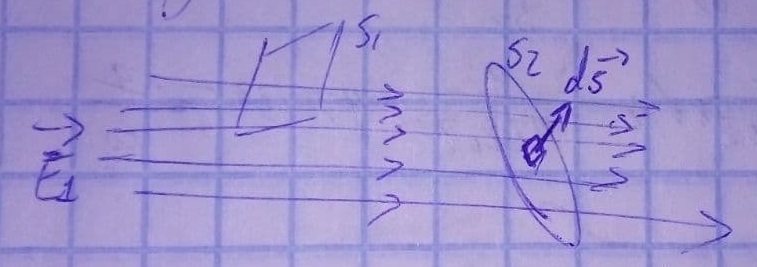 S₁
S₂
dS⃗
E⃗₁